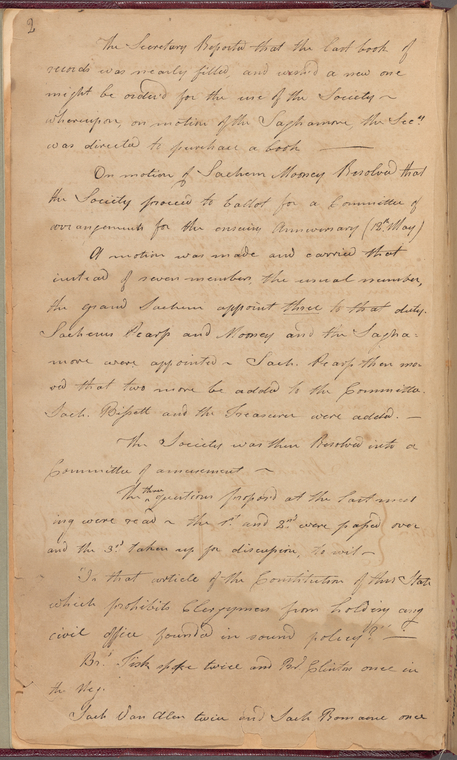 2
The Secretary Reported that the last book of
records was nearly filled, and wish'd a new one
might be order'd for the use of the Society ~
whereupon, on motion of the Saghamore the Secy
was directed to purchase a book ——
On motion of Sachem Mooney Resolved that
the Society proceed to ballot for a Committee of
arrangements for the ensuing Anniversary (12th May)
A motion was made and carried that
instead of seven members the usual number,
the grand Sachem appoint three to that duty.
Sachems Pearss and Mooney and the Sagha-
more were appointed ~ Sach. Pearss then mo-
ved that two more be added to the Committee
Sach. Bissett and the Treasurer were added. —
The Society was then Resolved into a
Committee of amusement ~
The three questions propos'd at the last meet
ing were read ~ the 1st and 2nd were passed over
and the 3d taken up for discussion, to wit —
"Is that article of the Constitution of this State
which prohibits Clergymen from holding any
civil office founded in sound policy? —
Br. Fish spoke twice and Br. Clinton once in
the Neg.
Sach Van Alen twice and Sach Romaine once